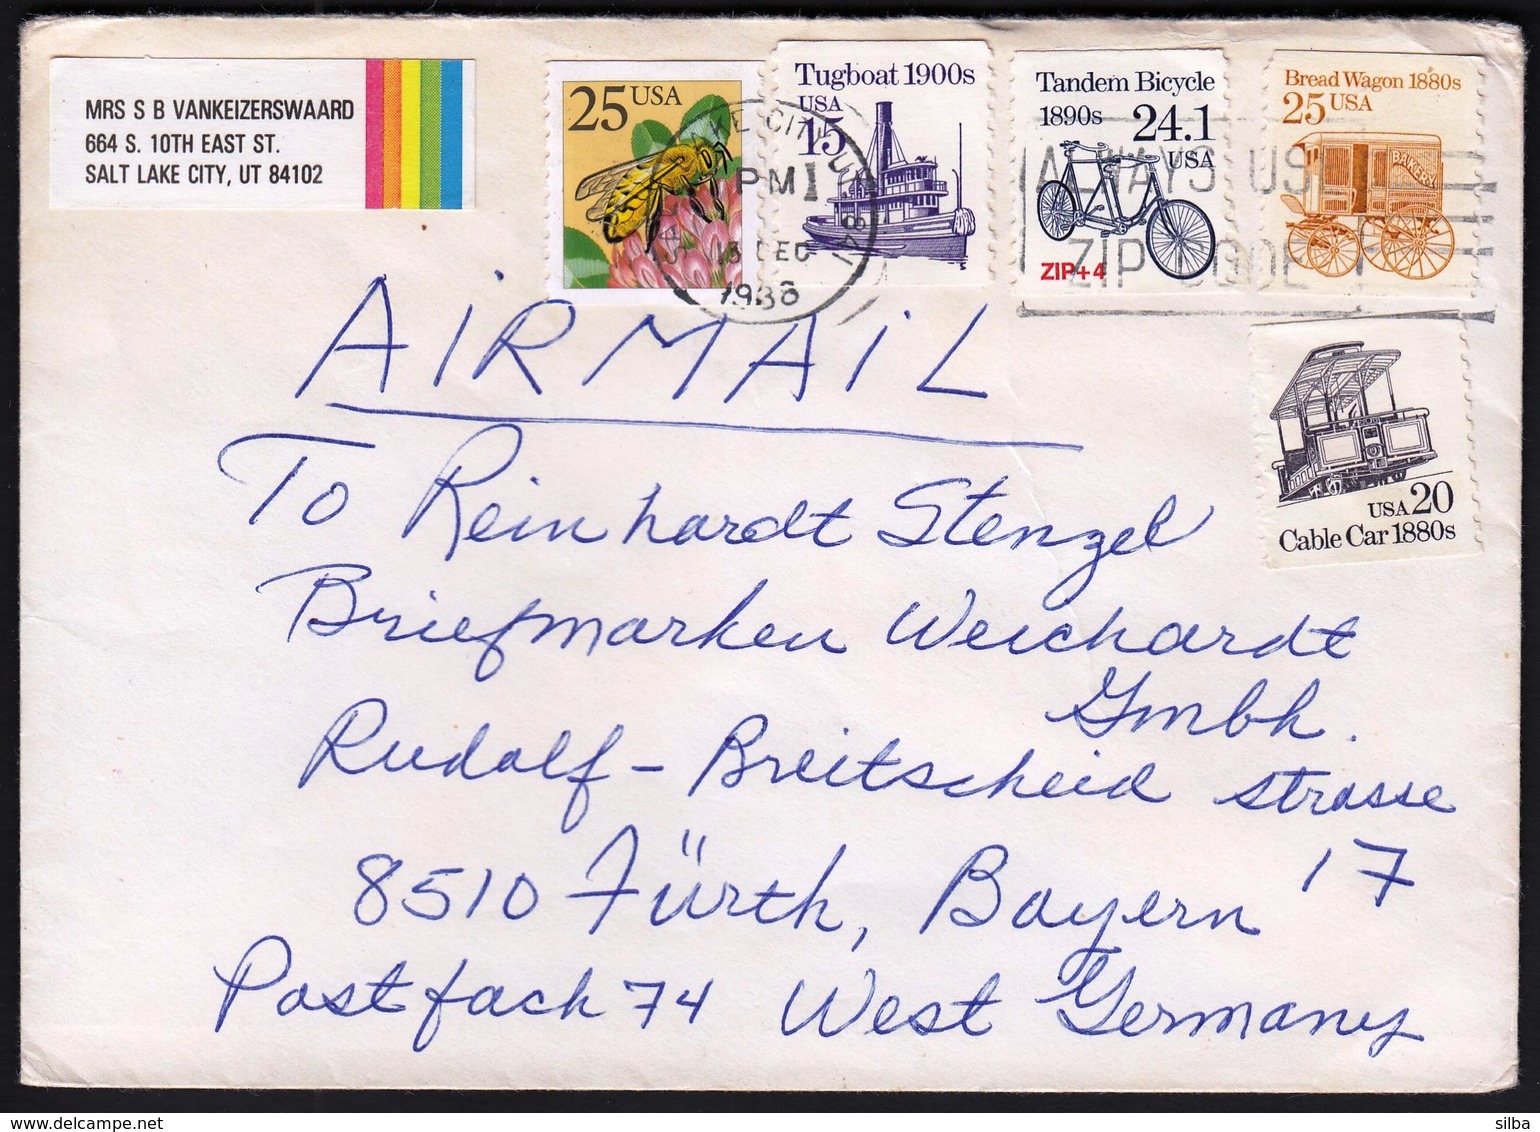 MRS S B VANKEIZERSWAARD
664 S. 10TH EAST ST.
SALT LAKE CITY, UT 84102
25 USA
Tugboat 1900s
USA
15
Tandem Bicycle
1890s 24.1
USA
ZIP+4
Bread Wagon 1880s
25 USA
BAKERY
KE CITY, U
PM
DEC
ALWAYS USE
ZIP CODE
USA 20
Cable Car 1880s
AIRMAIL
To Reinhardt Stenzel
Briefmarken Weichardt
Gmbh.
Rudolf - Breitscheid strasse
17
8510 Fürth, Bayern
Postfach 74 West Germany
silba